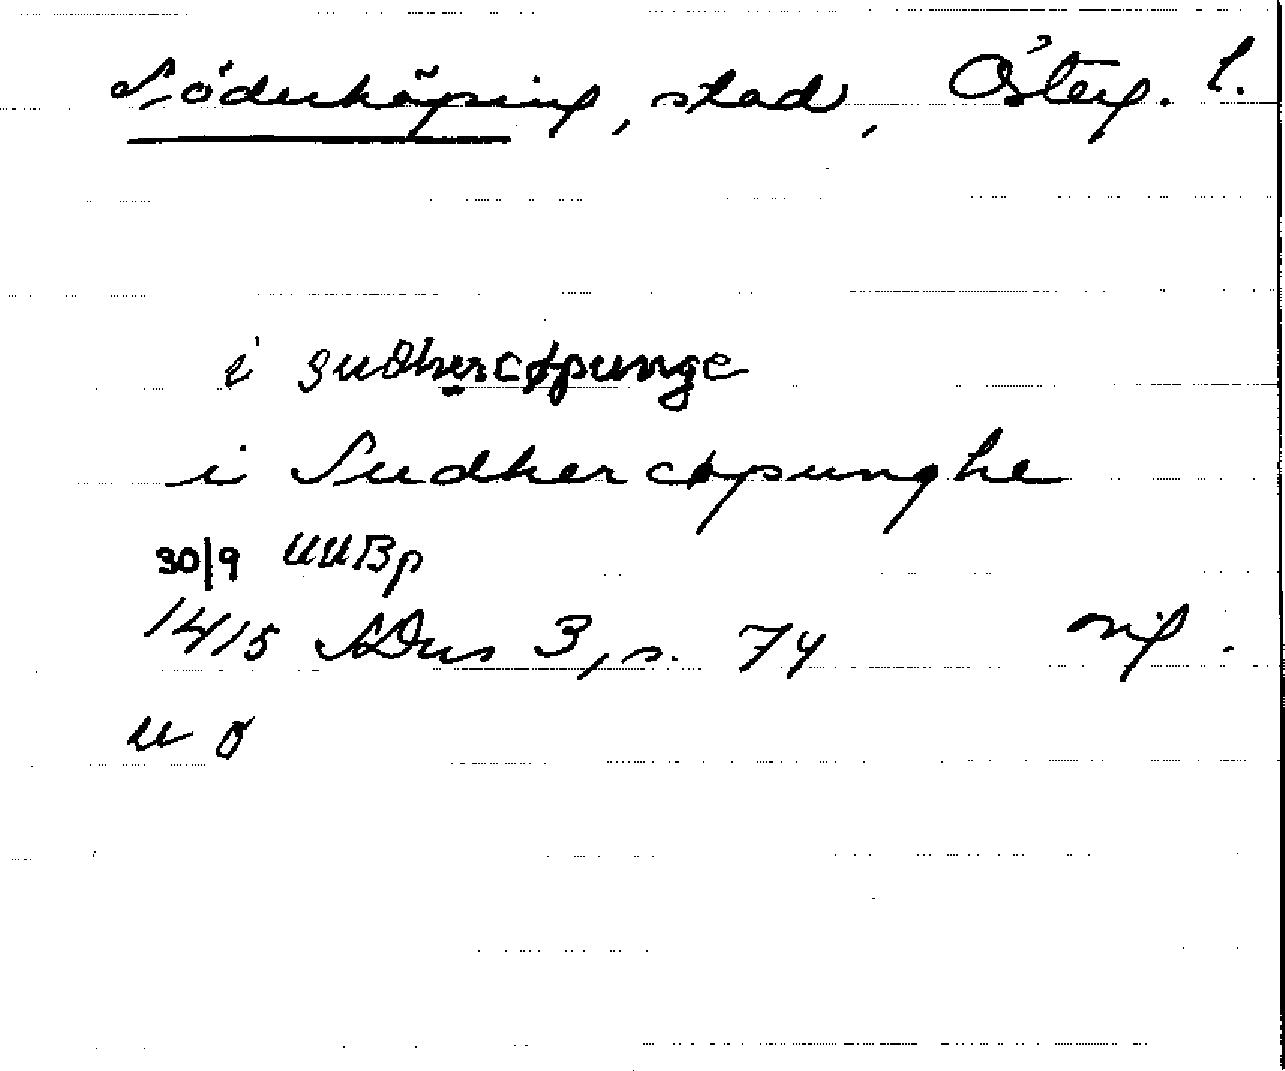 Söderköping, stad, Österg. l.
i sudhercøpunge
i Sudhercøpunghe
30/9 UUBp
1415 SDns 3, s. 74 orig.
u ø